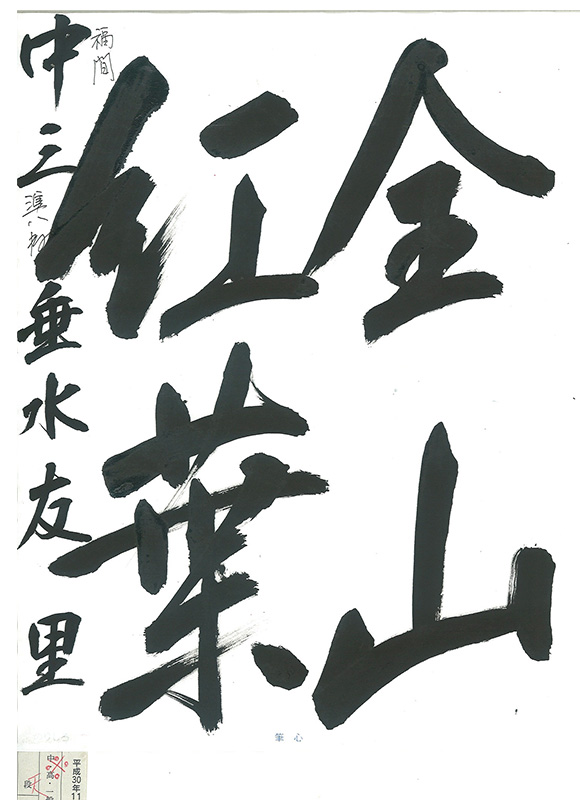 全山
紅葉
福間
中三 準八段
垂水友里
心筆
平成30年11
中高・一般
段